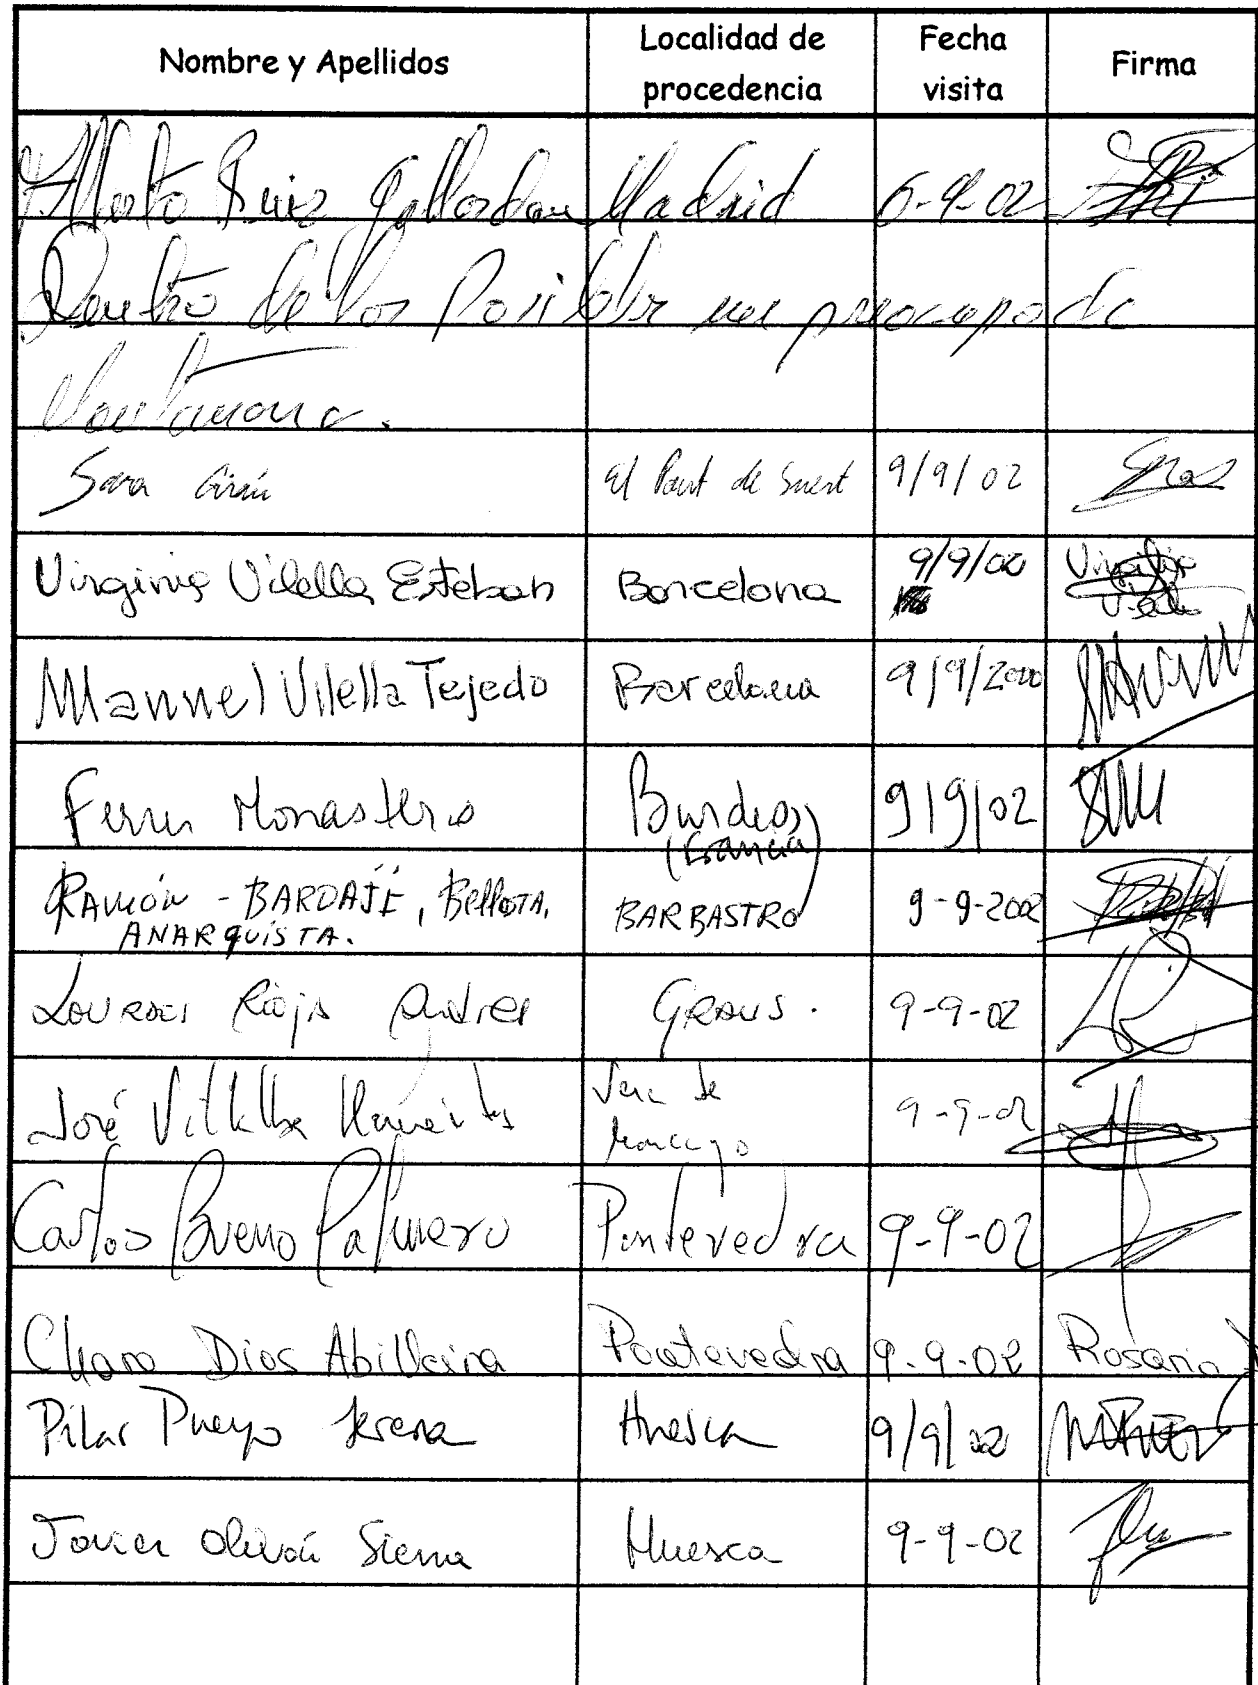 Nombre y Apellidos Localidad de procedencia Fecha visita Firma
Alberto Ruiz Gallardon Madrid 6-9-02
Dentro de los Posibles me preocupa de
Sara El Pont de Suert 9/9/02
Virginia Vilella Esteban Barcelona 9/9/02 Virginia
Manuel Vilella Tejedo Barcelona 9/9/2000
Ferrer Monasterio Burdeos (Francia) 9/9/02
RAMÓN - BARDAJÍ, BELLOSTA, ANARQUISTA. BARBASTRO 9-9-2002
Lourdes Rioja Andres GRAUS. 9-9-02
José Villalba Vera de Moncayo 9-9-02
Carlos Bueno Palmero Pontevedra 9-9-02
Charo Dios Abilleira Pontevedra 9-9-02 Rosario
Pilar Pueyo Huesca 9/9/02
Javier Oliván Sierra Huesca 9-9-02